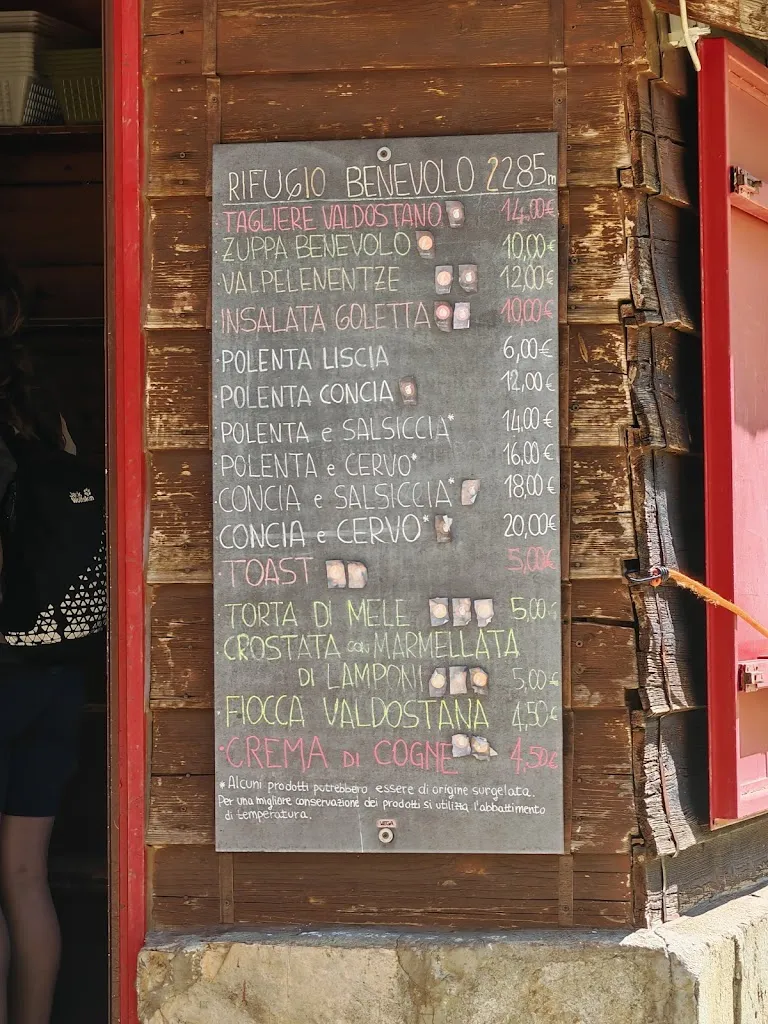 RIFUGIO BENEVOLO 2285m
·TAGLIERE VALDOSTANO 14,00€
·ZUPPA BENEVOLO 10,00€
·VALPELENENTZE 12,00€
·INSALATA GOLETTA 10,00€
·POLENTA LISCIA 6,00€
·POLENTA CONCIA 12,00€
·POLENTA e SALSICCIA* 14,00€
·POLENTA e CERVO* 16,00€
·CONCIA e SALSICCIA* 18,00€
·CONCIA e CERVO* 20,00€
·TOAST 5,00€
·TORTA DI MELE 5,00€
·CROSTATA con MARMELLATA
DI LAMPONI 5,00€
·FIOCCA VALDOSTANA 4,50€
·CREMA DI COGNE 4,50€
*Alcuni prodotti potrebbero essere di origine surgelata.
Per una migliore conservazione dei prodotti si utilizza l'abbattimento
di temperatura.
Jack Wolfskin